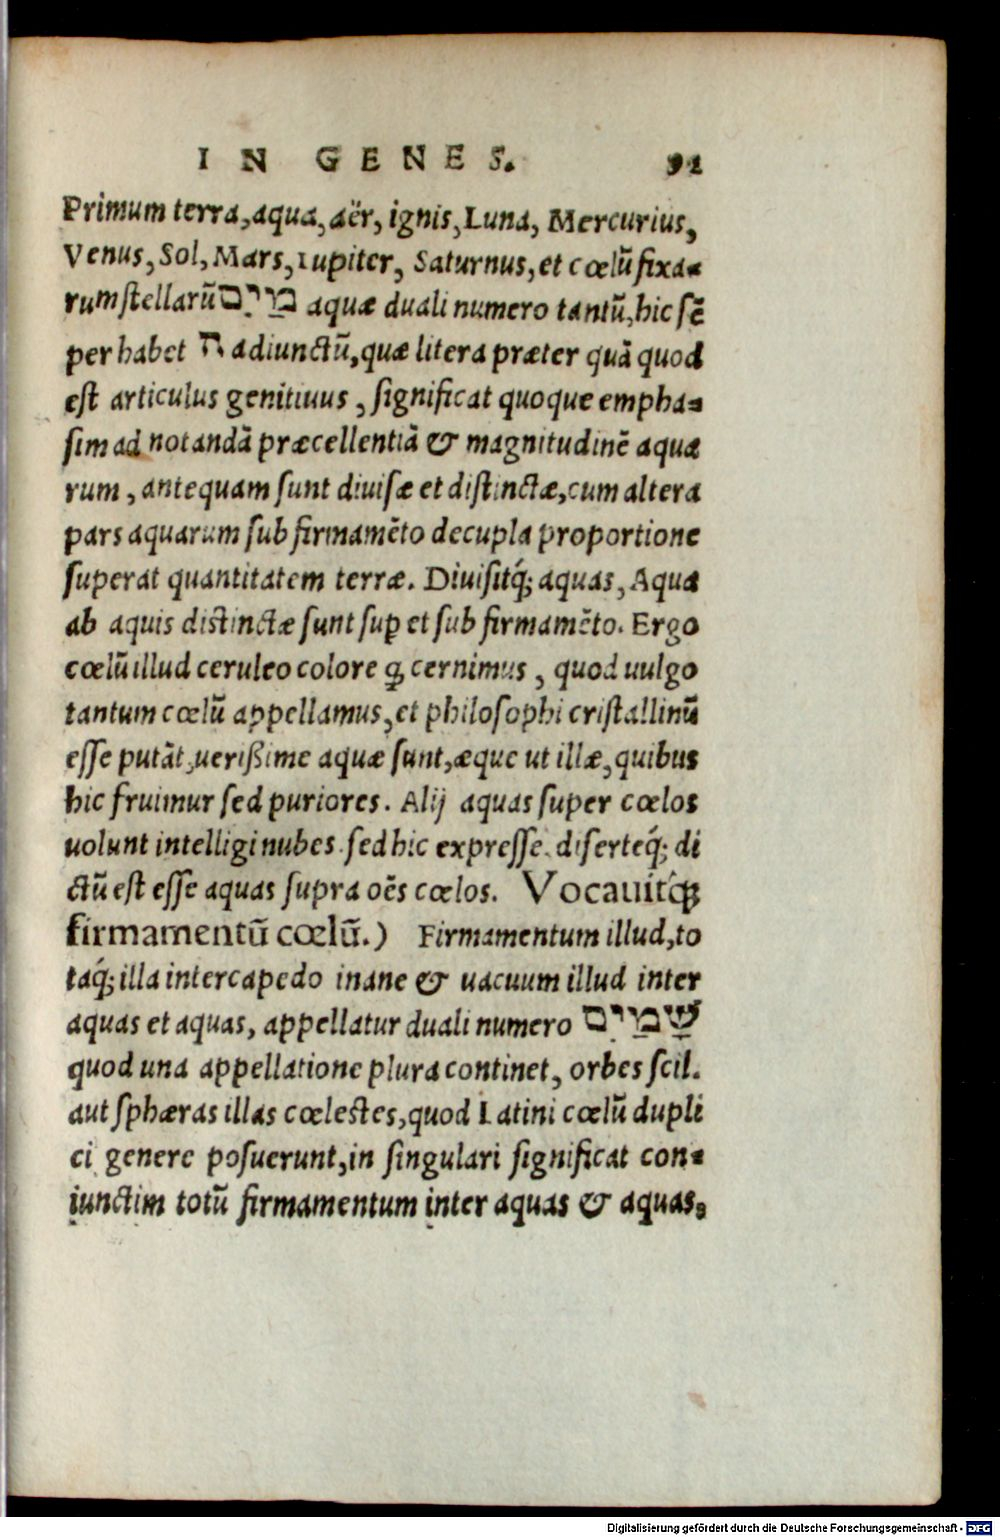 IN GENES. 91
Primum terra, aqua, aër, ignis, Luna, Mercurius,
Venus, Sol, Mars, Iupiter, Saturnus, et cœlũ fixa-
rum stellarũ מַיִם aquæ duali numero tantũ, hic sẽ
per habet ה adiunctũ, quæ litera præter quã quod
est articulus genitiuus, significat quoque empha-
sim ad notandã præcellentiã & magnitudinẽ aqua
rum, antequam sunt diuisæ et distinctæ, cum altera
pars aquarum sub firmamẽto decupla proportione
superat quantitatem terræ. Diuisitq́; aquas, Aqua
ab aquis distinctæ sunt suꝑ et sub firmamẽto. Ergo
cœlũ illud ceruleo colore ꝙ cernimus, quod uulgo
tantum cœlũ appellamus, et philosophi cristallinũ
esse putãt, uerißime aquæ sunt, æque ut illæ, quibus
hic fruimur sed puriores. Alij aquas super cœlos
uolunt intelligi nubes. sed hic expresse. diserteq́; di
ctũ est esse aquas supra oẽs cœlos. Vocauitq́;
firmamentũ cœlũ.) Firmamentum illud, to
taq́; illa intercapedo inane & uacuum illud inter
aquas et aquas, appellatur duali numero שָׁמַיִם
quod una appellatione plura continet, orbes scil.
aut sphæras illas cœlestes, quod Latini cœlũ dupli
ci genere posuerunt, in singulari significat con-
iunctim totũ firmamentum inter aquas & aquas,
Digitalisierung gefördert durch die Deutsche Forschungsgemeinschaft - DFG